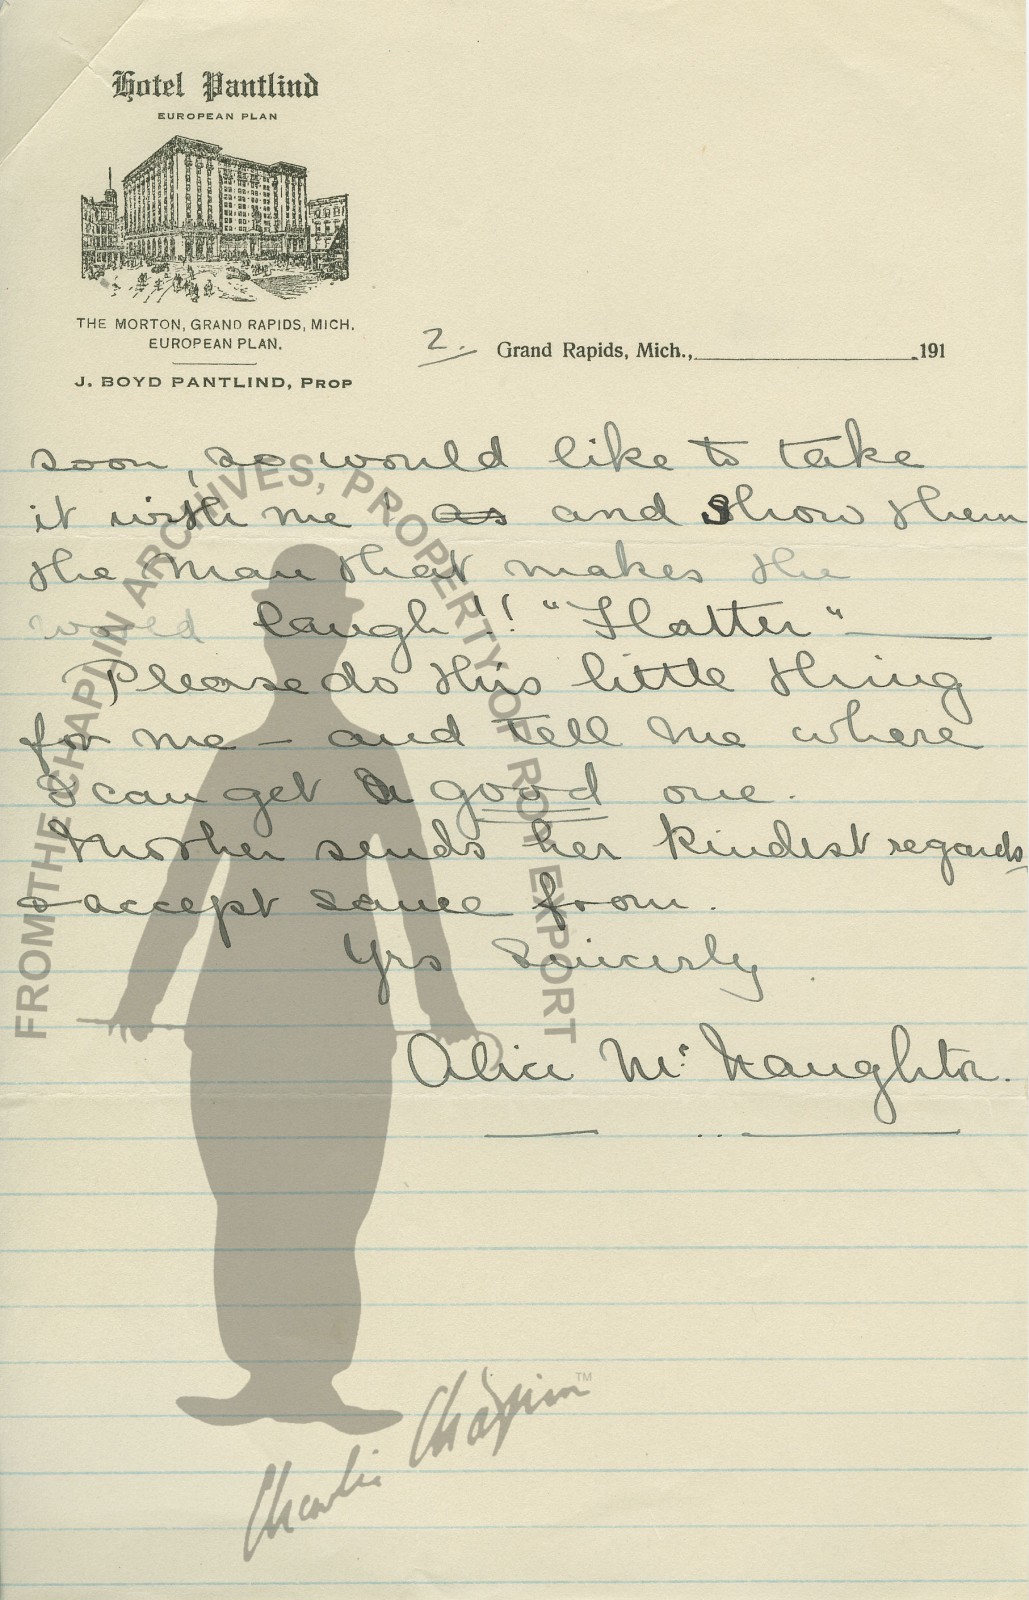 Hotel Pantlind
EUROPEAN PLAN
THE MORTON, GRAND RAPIDS, MICH.
EUROPEAN PLAN.
J. BOYD PANTLIND, PROP
2.
Grand Rapids, Mich., 191
soon, so would like to take
it with me ! as and Show them
the Man that makes the
world laugh!! "Flatter"
Please do this little thing
for me – and tell me where
I can get a good one.
Mother sends her kindest regards
& accept same from.
Yrs Sincerly
Alice McNaughton.
FROM THE CHAPLIN ARCHIVES, PROPERTY OF ROY EXPORT
Charlie Chaplin TM